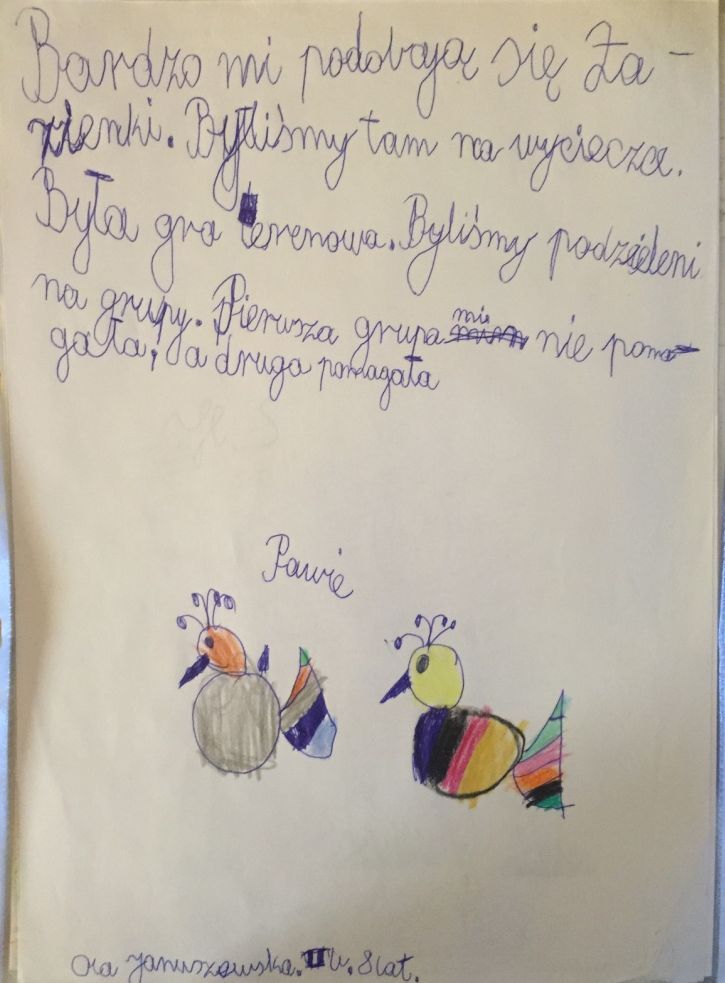 Bardzo mi podobają się Ła-
zienki. Byliśmy tam na wyciecze.
Była gra terenowa. Byliśmy podzieleni
na grupy. Pierwsza grupa mie nie poma-
gała, a druga pomagała
Pawie
Ola Januszewska. II b. 8 lat.